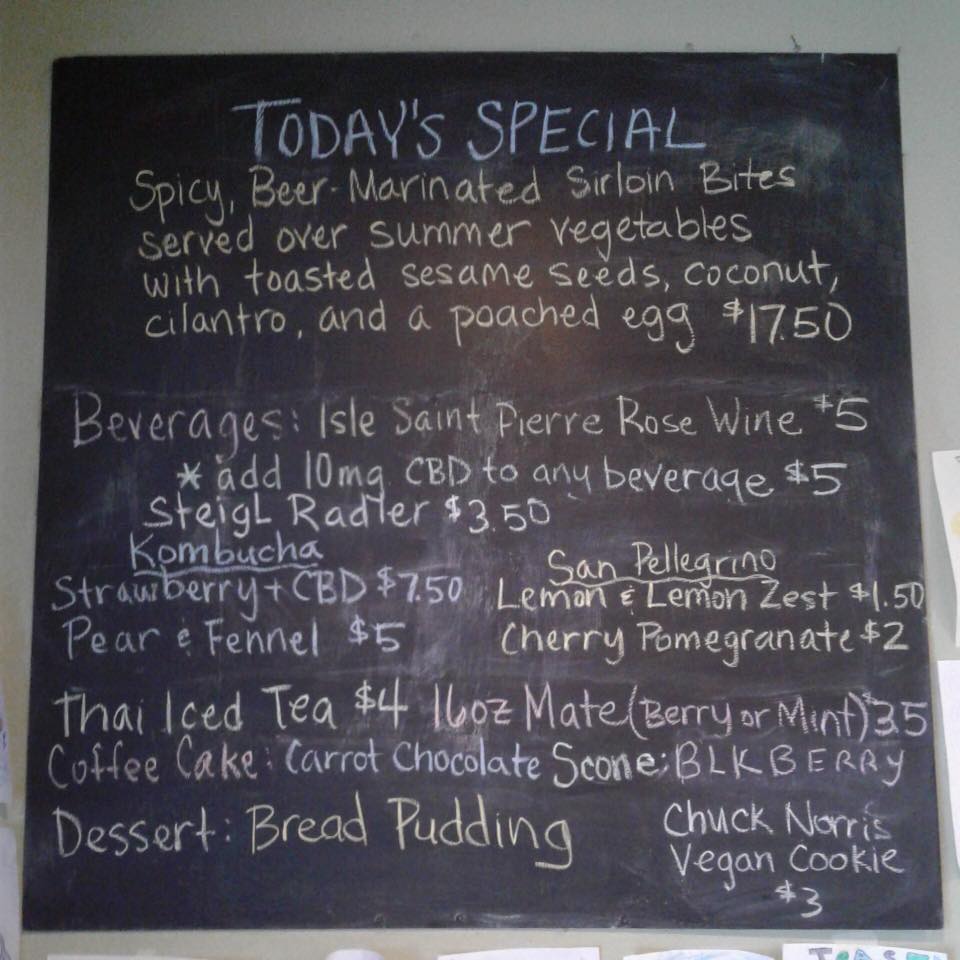 TODAY'S SPECIAL
Spicy, Beer-Marinated Sirloin Bites
served over summer vegetables
with toasted sesame seeds, coconut,
cilantro, and a poached egg $17.50
Beverages: Isle Saint Pierre Rose Wine $5
* add 10mg CBD to any beverage $5
Steigl Radler $3.50
Kombucha
Strawberry + CBD $7.50
Pear & Fennel $5
San Pellegrino
Lemon & Lemon Zest $1.50
Cherry Pomegranate $2
Thai Iced Tea $4 16oz Mate (Berry or Mint) $3.5
Coffee Cake: Carrot Chocolate Scone: BLKBERRY
Dessert: Bread Pudding
Chuck Norris
Vegan Cookie
$3